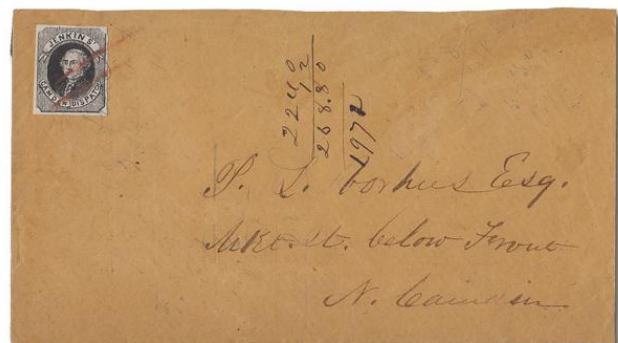 JENKINS'
CAMDEN DISPATCH
2240
12
268.80
1972
P. L. Vorhees Esq.
Mkt. St. below Front
N. Camden